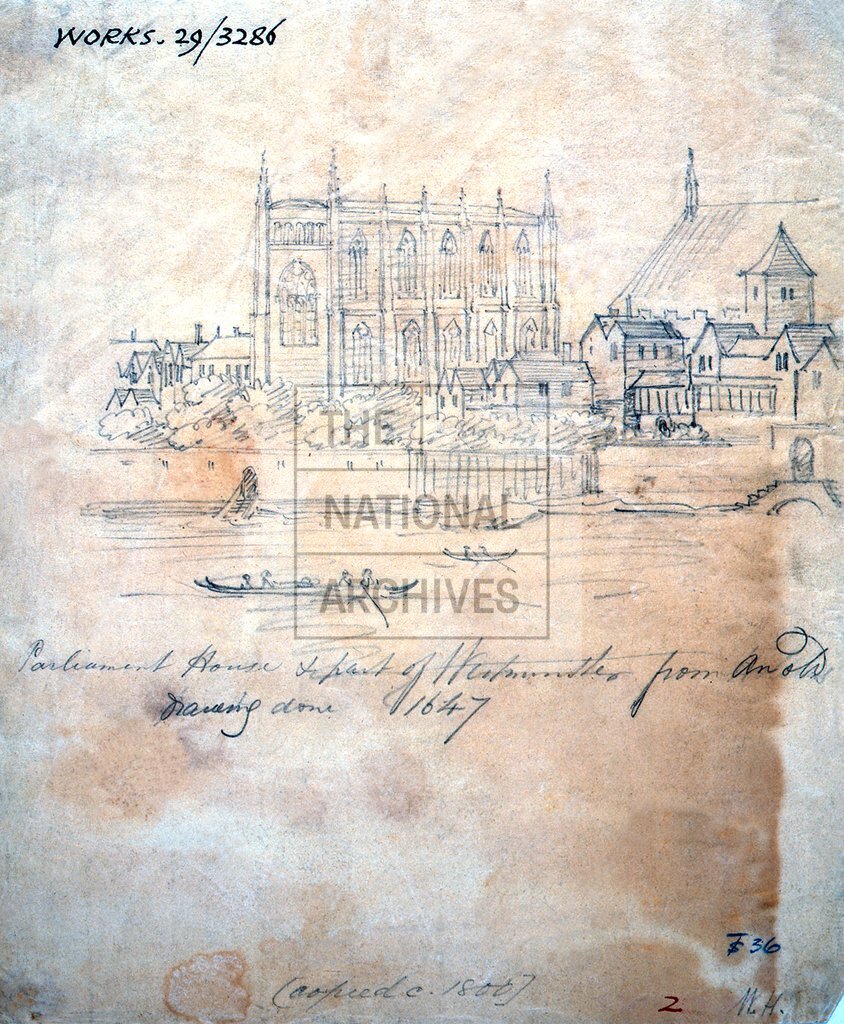 WORKS. 29/3286
THE
NATIONAL
ARCHIVES
Parliament House & part of Westminster from an old
Drawing done 1647
(copied c. 1800)
F 36
2 W.H.